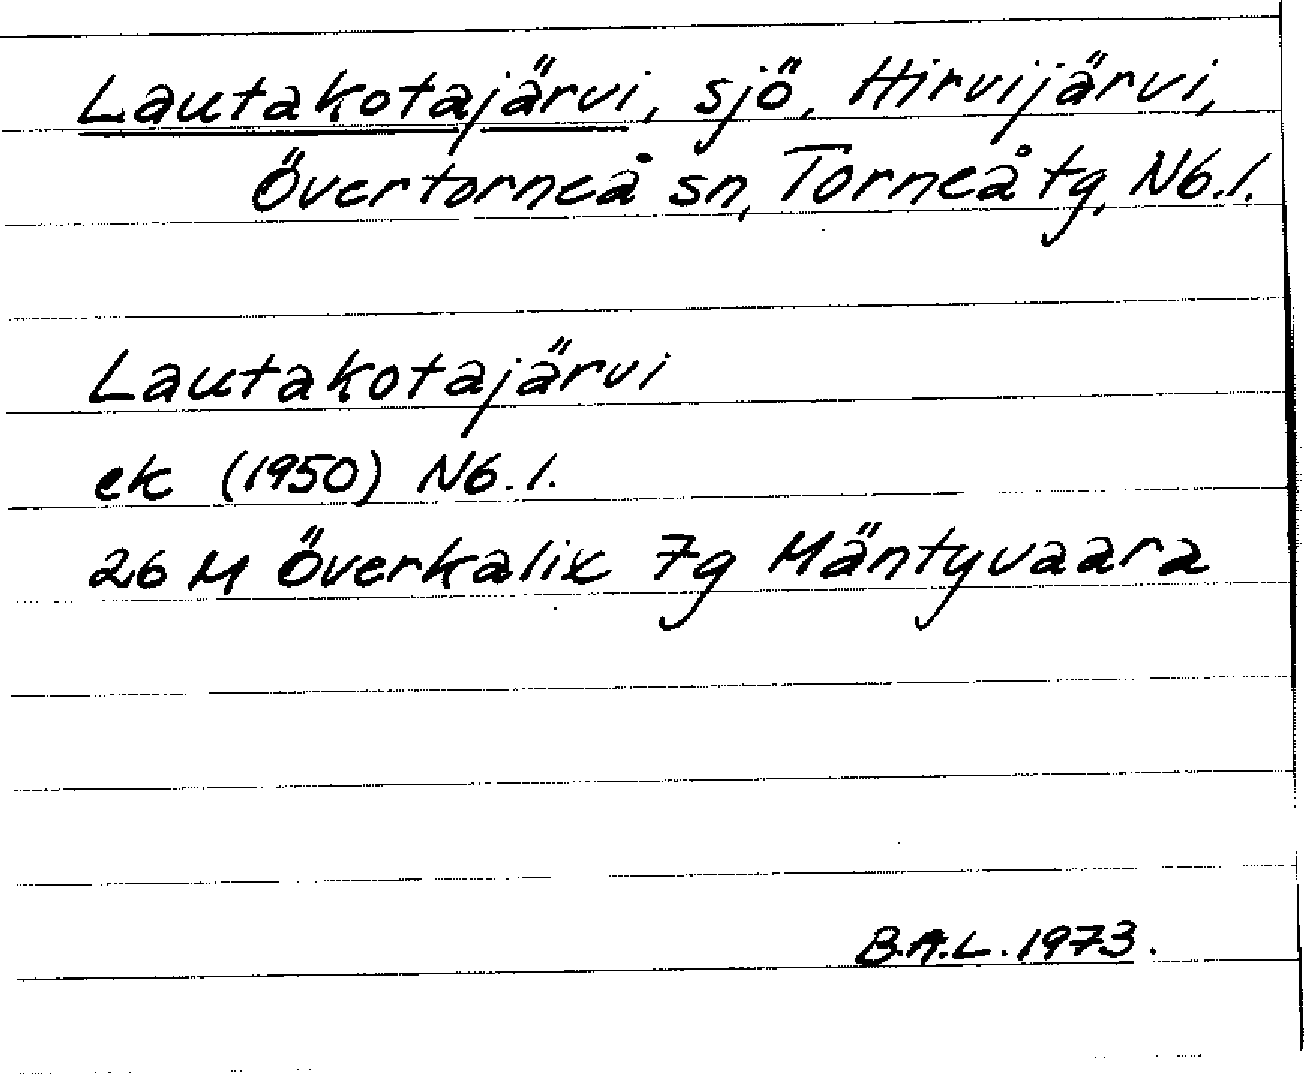 Lautakotajärvi, sjö, Hirvijärvi,
Övertorneå sn, Torneå tg, Nb.l.
Lautakotajärvi
ek (1950) Nb.l.
26 M Överkalix 7g Mäntyvaara
B.A.L. 1973.